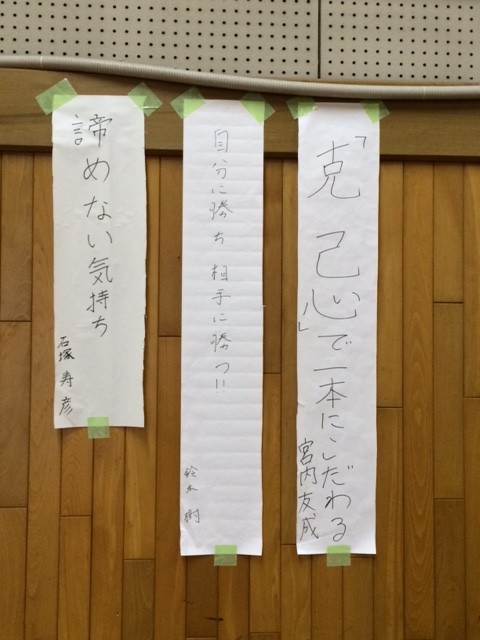 「克己心」で一本にこだわる
宮内友成
自分に勝ち 相手に勝つ!!
鈴木 樹
諦めない気持ち
石塚 寿彦